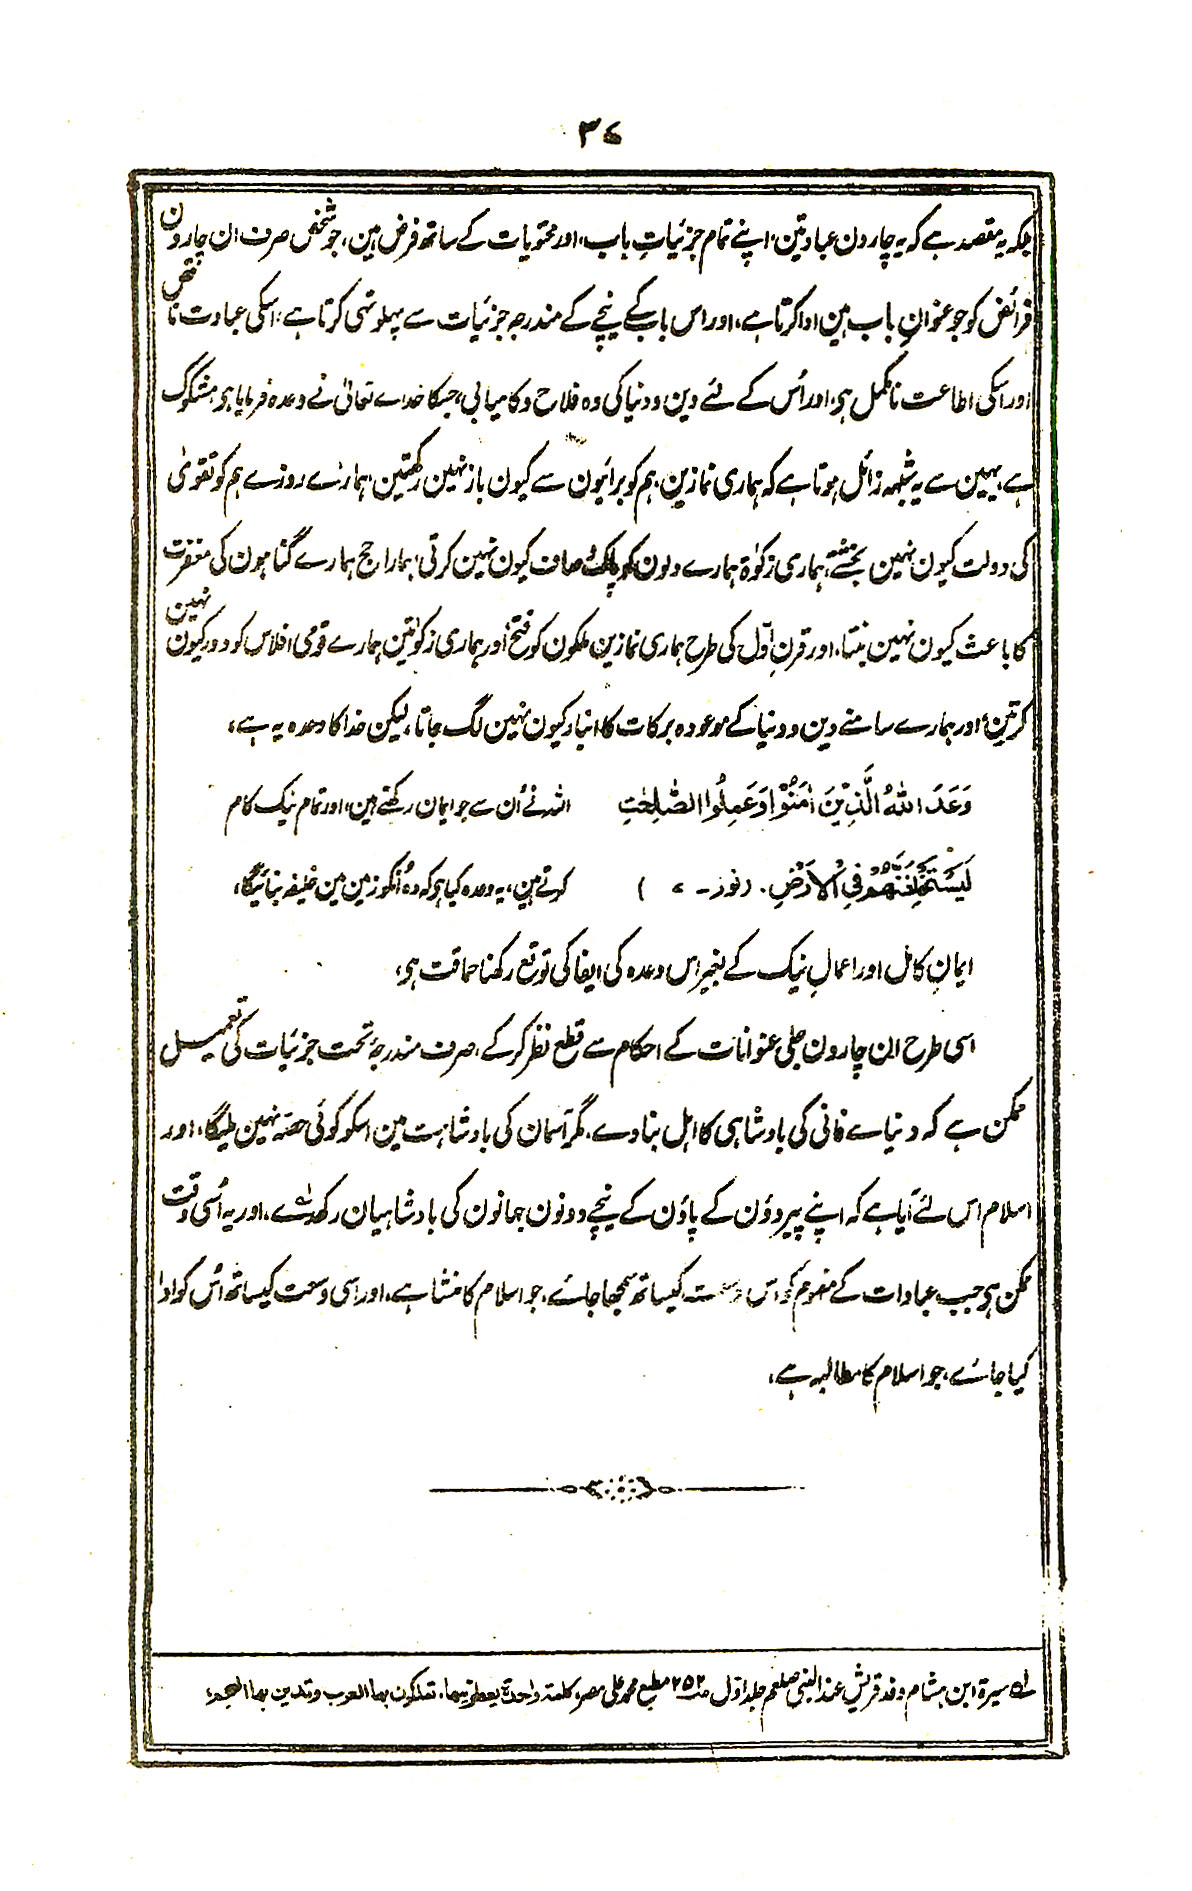 ۳۷
بلکہ یہ مقصد ہے کہ یہ چارون عبادتین، اپنے تمام جزئیاتِ باب، اور محتویات کے ساتھ فرض ہین، جو شخص صرف ان چارون
فرائض کو جو عنوانِ باب ہین ادا کرتا ہے، اور اس باب کے نیچے کے مندرجہ جزئیات سے پہلو تہی کرتا ہے، اسکی عبادت ناقص
اور اسکی اطاعت نامکمل ہی، اور اُس کے لئے دین و دنیا کی وہ فلاح و کامیابی، جسکا خداے تعالیٰ نے وعدہ فرمایا ہی، مشکوک
ہے، یہین سے یہ شبہہ زائل ہوتا ہے کہ ہماری نمازین ہم کو برائیون سے کیون باز نہین رکھتین، ہمارے روزے ہم کو تقویٰ
کی دولت کیون نہین بخشتے، ہماری زکوٰۃ ہمارے دلون کو پاک و صاف کیون نہین کرتی، ہمارا حج ہمارے گناہون کی مغفرت
کا باعث کیون نہین بنتا، اور قرنِ اوّل کی طرح ہماری نمازین ملکون کو فتح اور ہماری زکوٰتین ہمارے قومی افلاس کو دور کیون نہین
کرتین، اور ہمارے سامنے دین و دنیا کے موعودہ برکات کا انبار کیون نہین لگ جاتا، لیکن خدا کا وعدہ یہ ہے،
وَعَدَ اللّٰهُ الَّذِيْنَ اٰمَنُوْا وَعَمِلُوا الصّٰلِحٰتِ اللہ نے اُن سے جو ایمان رکھتے ہین، اور تمام نیک کام
لَيَسْتَخْلِفَنَّهُمْ فِي الْاَرْضِ. (نور - ۷) کرتے ہین، یہ وعدہ کیا ہی کہ وہ اُنکو زمین مین خلیفہ بنائیگا،
ایمانِ کامل اور اعمالِ نیک کے بغیر اس وعدہ کی ایفا کی توقع رکھنا حماقت ہی،
اسی طرح ان چارون جلی عنوانات کے احکام سے قطع نظر کرکے، صرف مندرجۂ تحت جزئیات کی تعمیل
ممکن ہے کہ دنیاے فانی کی بادشاہی کا اہل بنا دے، مگر آسمان کی بادشاہت مین اسکو کوئی حصہ نہین ملیگا، اور
اسلام اس لئے آیا ہے کہ اپنے پیروؤن کے پاؤن کے نیچے دونون جہانون کی بادشاہیان رکھدے، اور یہ اُسی وقت
ممکن ہی جب عبادات کے مفہوم کو اس وسعت کیساتھ سمجھا جائے، جو اسلام کا منشا ہے، اور اسی وسعت کیساتھ اُس کو ادا
کیا جائے، جو اسلام کا مطالبہ ہے،
لہ سیرۃ ابن ہشام وفد قریش عند النبی صلعم جلد اوّل ص ۲۵۲ مطبع محمد علی مصر، کلمة واحدة يعطونيها، تملكون بها العرب وتدين بها العجم،